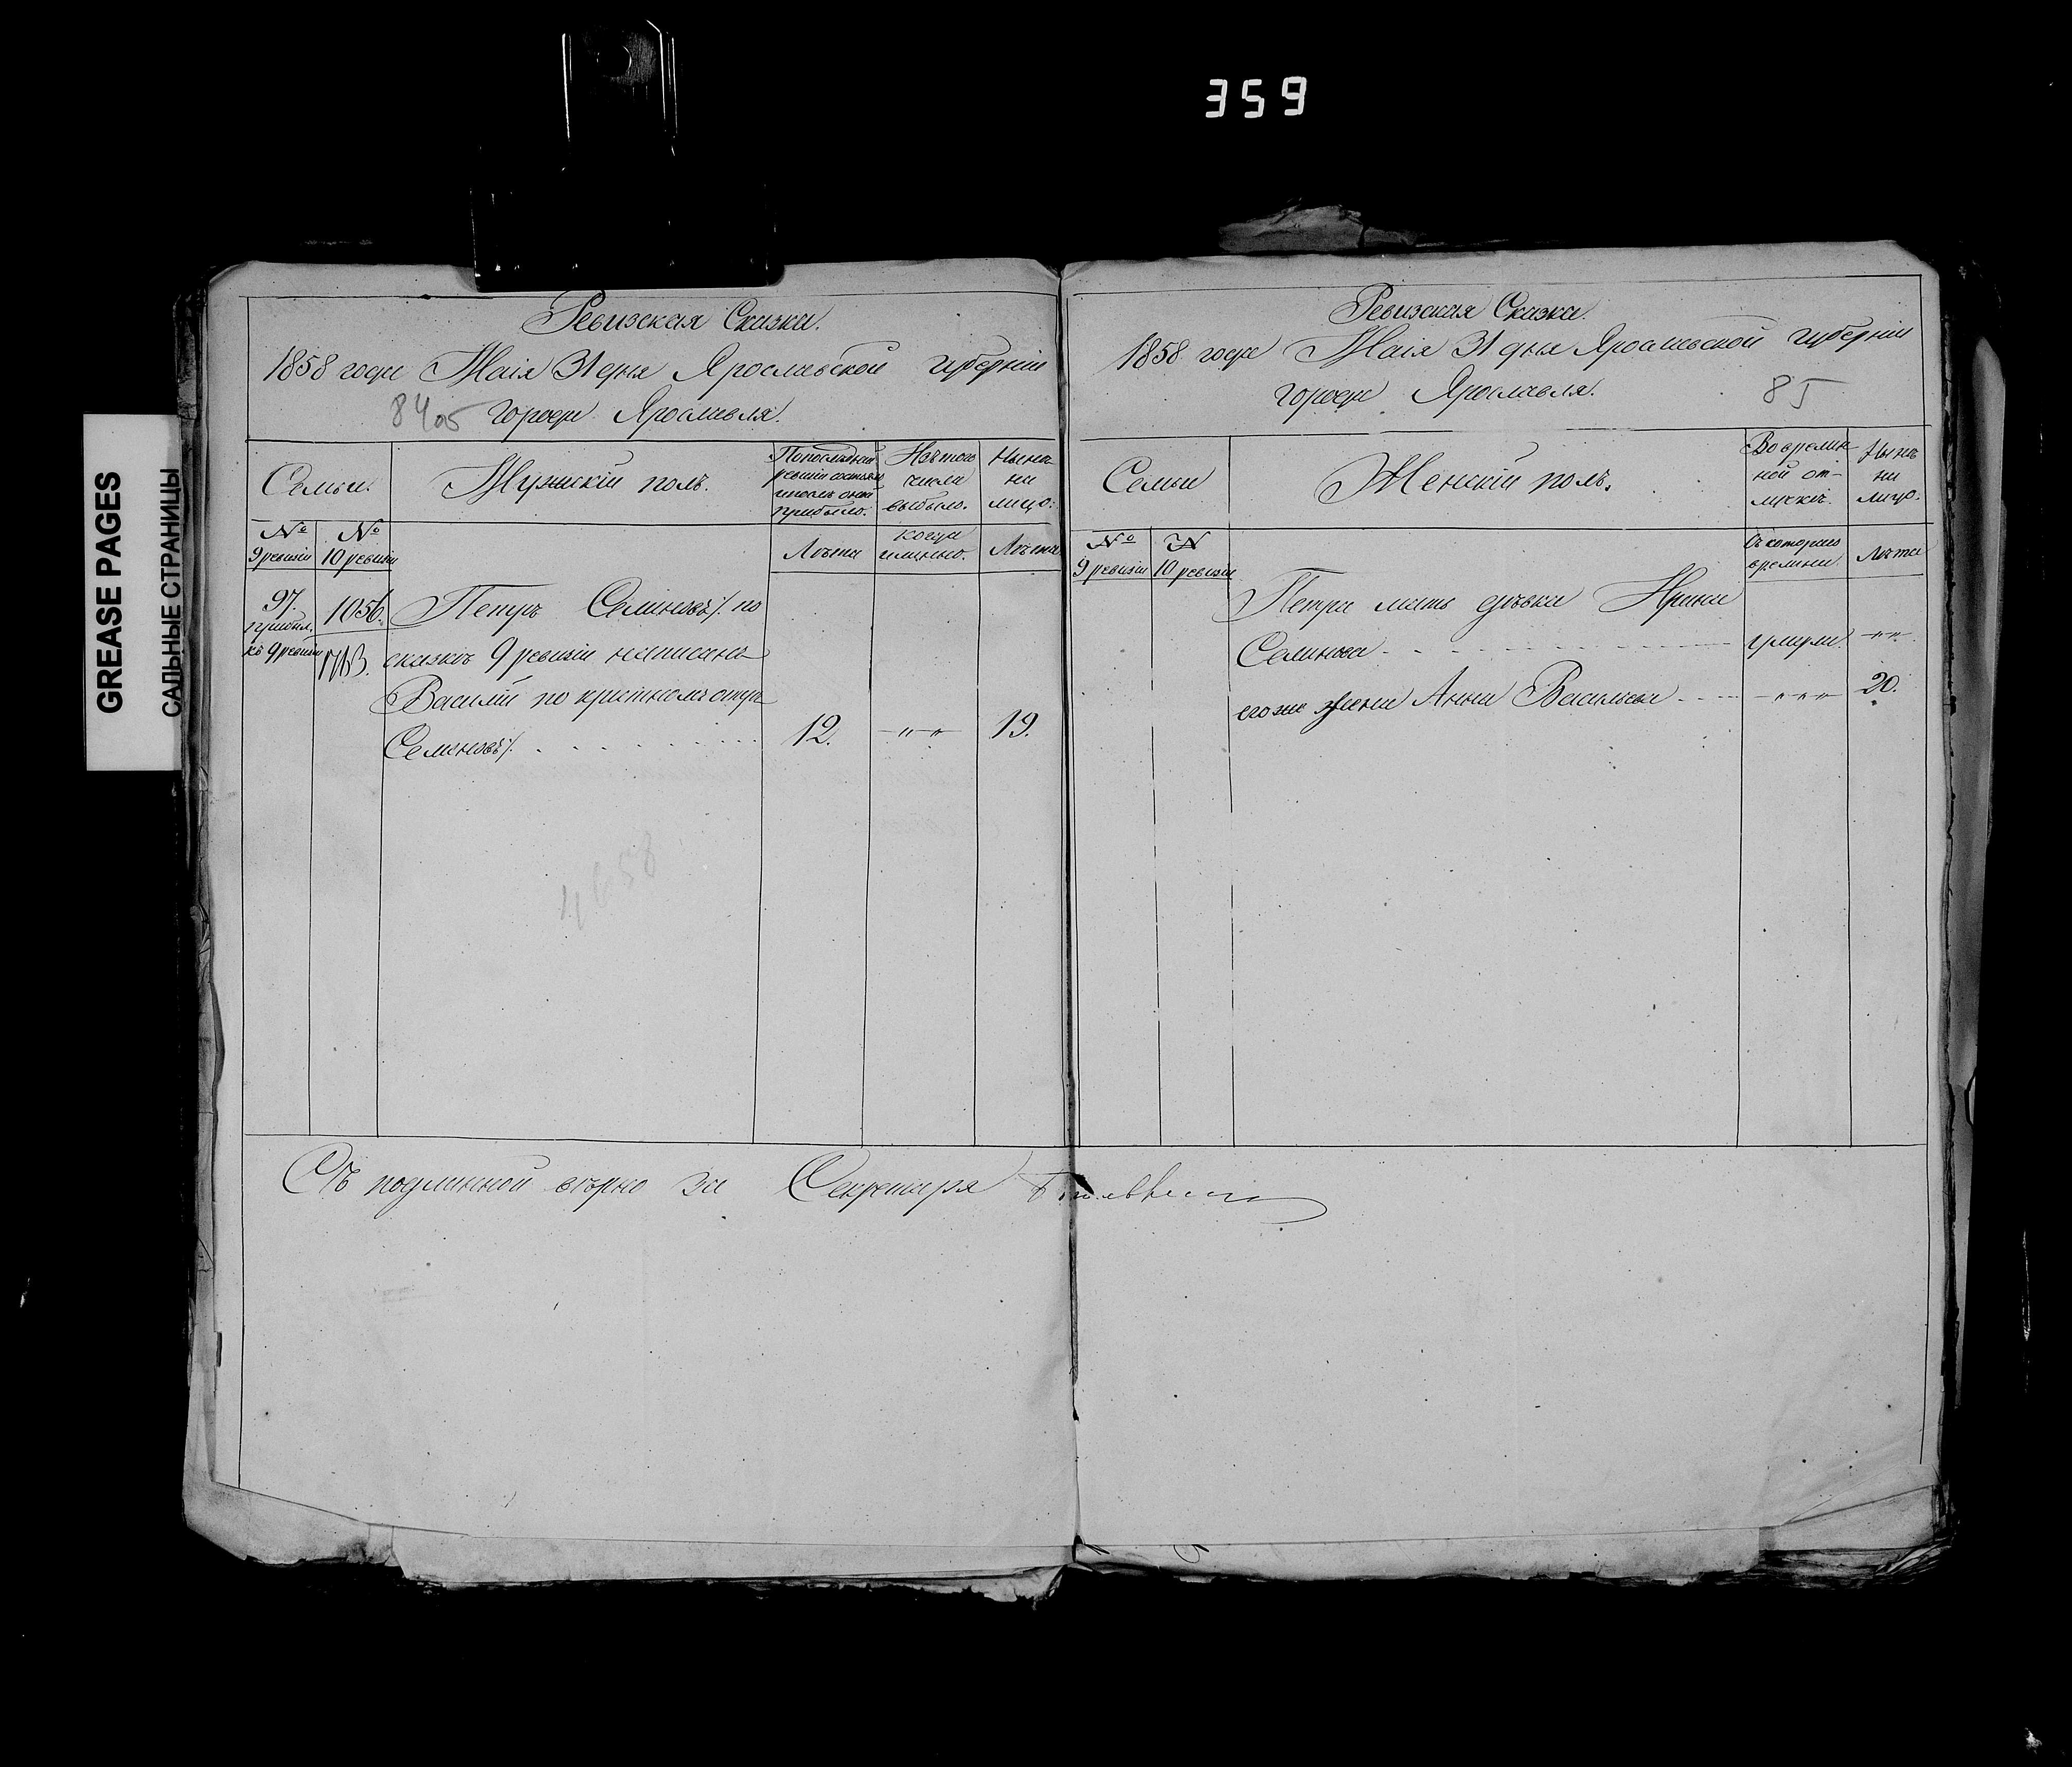 359
GREASE PAGES
САЛЬНЫЕ СТРАНИЦЫ
Ревизская Сказка.
1858 года Маія 31 дня Ярославской губерніи
84 об города Ярославля.
Семьи.
Мужскій полъ.
По последней ревизіи состояло и после оной прибыло.
Изъ того числа выбыло.
Ныне на лицо.
№ 9 ревизіи
№ 10 ревизіи
Лѣта
Когда именно.
Лѣта
97. прибыл. къ 9 ревизіи
1056.
Петръ Семеновъ /. по
сказкѣ 9 ревизіи написанъ
Василій по крестному отцу
Семеновъ /. 12. -„-„- 19.
4658
Съ подлинной вѣрно за Секретаря
Ревизская Сказка.
1858 года Маія 31 дня Ярославской губерніи
города Ярославля. 85
Семьи
Женскій полъ.
Во времен-
ной от-
лучкѣ.
Нынѣ
на
лицо.
№ 9 ревизіи
№ 10 ревизіи
Съ котораго
времени.
Лѣта
Петра мать дѣвка Ирина
Семенова умерла. -„„-
его же жена Анна Васильева - „ „ - 20.